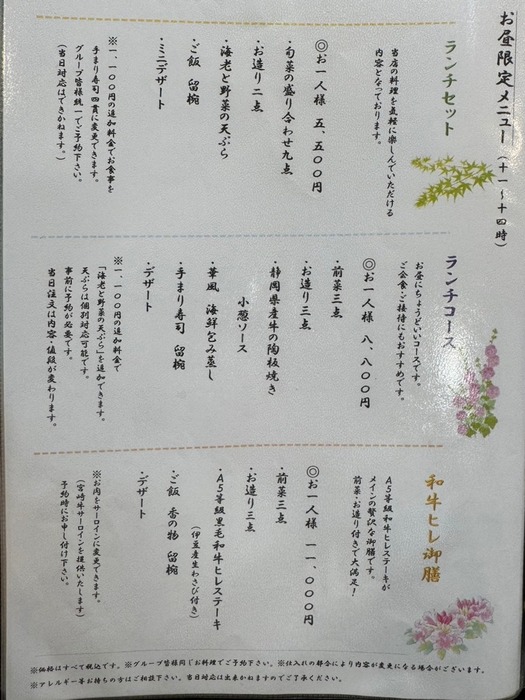 お昼限定メニュー（十一～十四時）
ランチセット
当店の料理を気軽に楽しんでいただける
内容となっております。
◎お一人様　五、五〇〇円
・旬菜の盛り合わせ九点
・お造り二点
・海老と野菜の天ぷら
・ご飯　留椀
・ミニデザート
※一、一〇〇円の追加料金でお食事を
手まり寿司四貫に変更できます。
グループ皆様統一でご予約下さい。
（当日対応はできかねます。）
ランチコース
お昼にちょうどいいコースです。
ご会食・ご接待にもおすすめです。
◎お一人様　八、八〇〇円
・前菜三点
・お造り三点
・静岡県産牛の陶板焼き
小葱ソース
・華風　海鮮包み蒸し
・手まり寿司　留椀
・デザート
※一、一〇〇円の追加料金で
「海老と野菜の天ぷら」を追加できます。
天ぷらは個別対応可能です。
事前に予約が必要です。
当日注文は内容・値段が変わります。
和牛ヒレ御膳
A5等級和牛ヒレステーキが
メインの贅沢な御膳です。
前菜・お造り付きで大満足！
◎お一人様　一一、〇〇〇円
・前菜三点
・お造り三点
・A5等級黒毛和牛ヒレステーキ
（伊豆産生わさび付き）
・ご飯　香の物　留椀
・デザート
※お肉をサーロインに変更できます。
（宮崎牛サーロインを提供いたします）
予約時にお申し付け下さい。
※価格はすべて税込です。※グループ皆様同じお料理でご予約下さい。※仕入れの都合により内容が変更になる場合がございます。
※アレルギー等お持ちの方はご相談下さい。当日対応は出来かねますのでご了承ください。